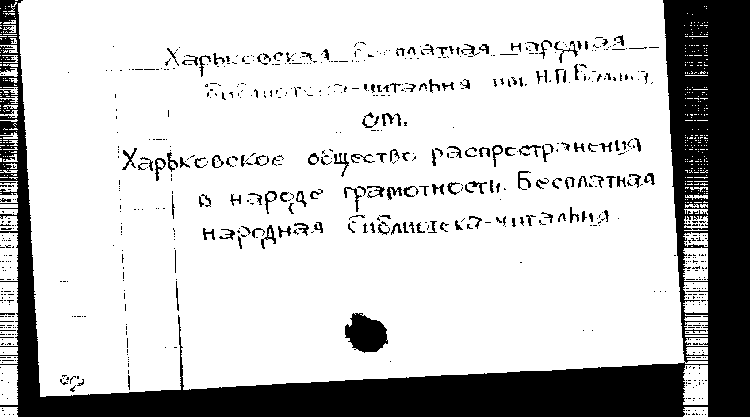 Харьковская бесплатная народная
библиотека-читальня им. Н.П.
см.
Харьковское общество распространения
в народе грамотности. Бесплатная
народная библиотека-читальня.